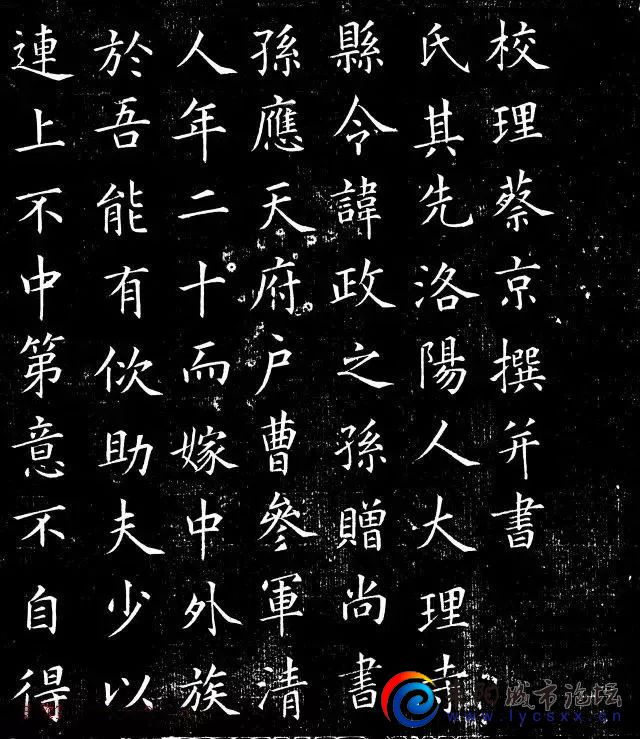 校理蔡京撰并書
氏其先洛陽人大理寺
縣令諱政之孫贈尚書
孫應天府户曹參軍清
人年二十而嫁中外族
於吾能有佽助夫少以
連上不中第意不自得
城市论坛
www.lycsxx.cn